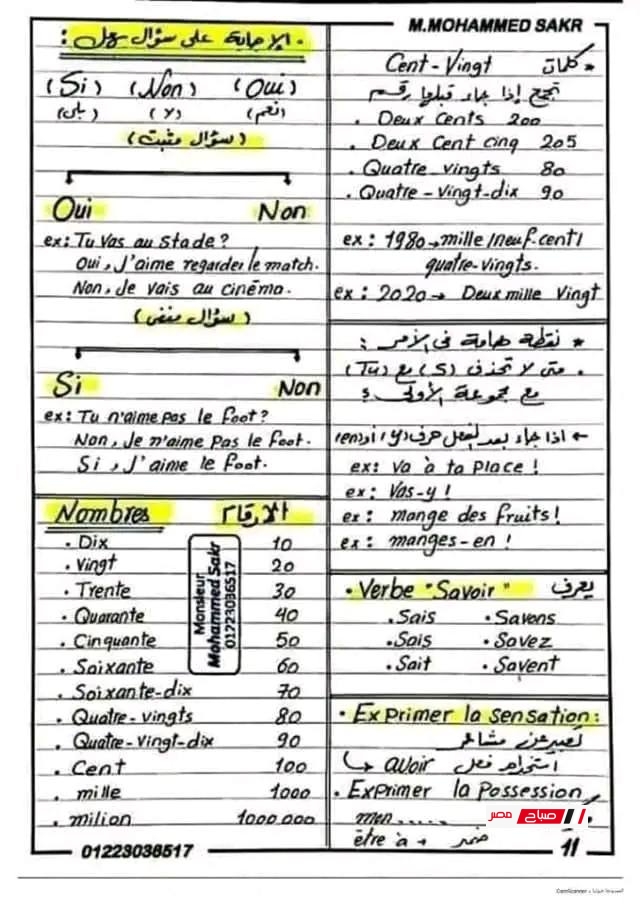 M.MOHAMMED SAKR
الإجابة على سؤال بهل :
(Si) (Non) (Oui)
(بلى) (لا) (نعم)
(سؤال مثبت)
Oui Non
ex: Tu vas au stade?
Oui, J'aime regarder le match.
Non, Je vais au cinéma.
(سؤال منفى)
Si Non
ex: Tu n'aime pas le foot?
Non, Je n'aime pas le foot.
Si, J'aime le foot.
Nombres الارقام
. Dix 10
. Vingt 20
. Trente 30
. Quarante 40
. Cinquante 50
. Soixante 60
. Soixante-dix 70
. Quatre-vingts 80
. Quatre-vingt-dix 90
. Cent 100
. mille 1000
. milion 1000 000
Monsieur
Mohammed Sakr
01223036517
01223036517
* كلمات Cent-Vingt
تجمع إذا جاء قبلها رقم
. Deux Cents 200
. Deux Cent cinq 205
. Quatre-vingts 80
. Quatre-vingt-dix 90
ex: 1980 → mille/neuf-cent/
quatre-vingts.
ex: 2020 → Deux mille Vingt
* نقطة هامة فى الأمر :
. متى لا تحذف (S) مع (Tu)
مع مجموعة الأولى ؟
← اذا جاء بعد الفعل حرف (y) أو (en)
ex: Va à ta place !
ex: Vas-y !
ex: mange des fruits!
ex: manges-en !
. Verbe "Savoir" يعرف
. Sais . Savons
. Sais . Savez
. Sait . Savent
. Exprimer la sensation:
تعبير عن مشاعر
استخدام فعل avoir
. Exprimer la Possession
mon.....
être à + ضمير
صباح مصر
11
CamScanner